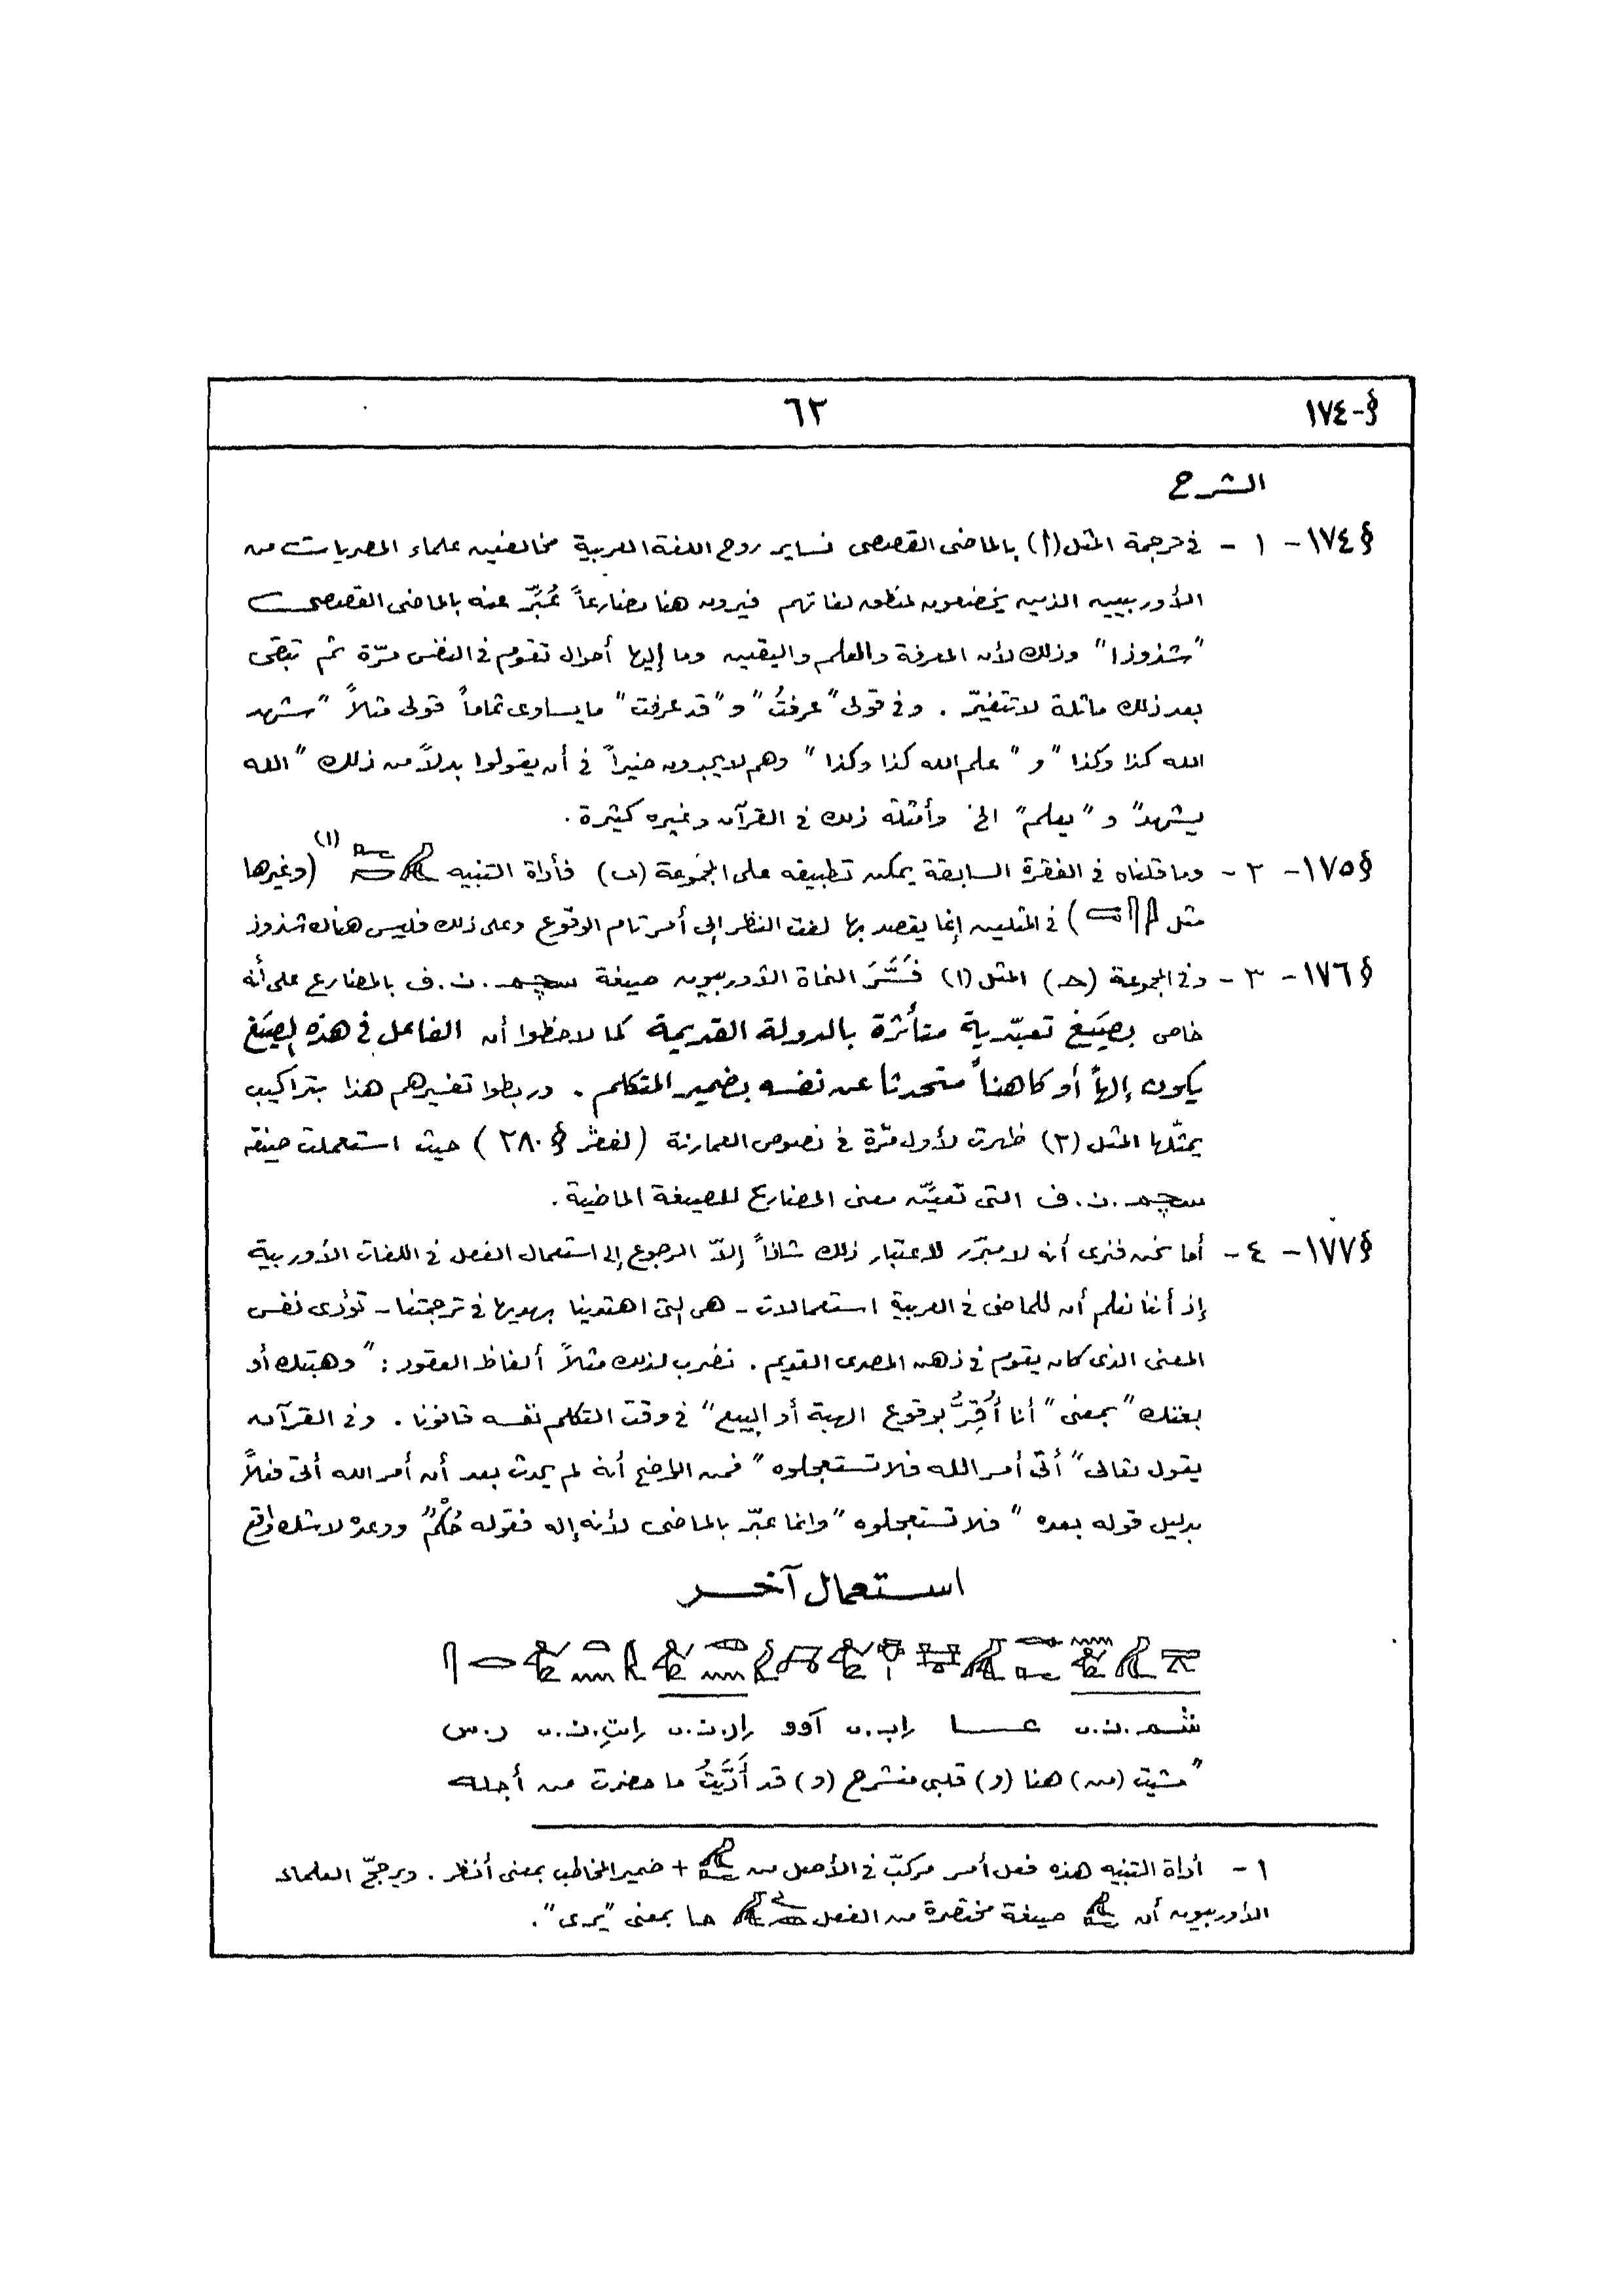 §-١٧٤
٦٢
الشرح
§١٧٤- ١- فى ترجمة المثل (١) بالماضى القصصى نساير روح اللغة العربية مخالفين علماء المصريات من
الأوربيين الذين يخضعون لمنطق لغاتهم فيرون هنا مضارعاً عُبِّر عنه بالماضى القصصى
"شذوذا" وذلك لأن المعرفة والعلم واليقين وما إليها أحوال تقوم فى النفس مرّة ثم تبقى
بعد ذلك ماثلة لا تتغيّر. وفى قولى "عرفتُ" و"قد عرفت" ما يساوى تماماً قولى مثلاً "شهد
الله كذا وكذا" و "علم الله كذا وكذا" وهم لا يجدون ضيراً فى أن يقولوا بدلاً من ذلك "الله
يشهد" و "يعلم" الخ وأمثلة ذلك فى القرآن وغيره كثيرة.
§١٧٥- ٢- وما قلناه فى الفقرة السابقة يمكن تطبيقه على المجموعة (ب) فأداة التنبيه (١) (وغيرها
مثل ) فى المثلين إنما يقصد بها لفت النظر إلى أمر تام الوقوع وعلى ذلك فليس هناك شذوذ
§١٧٦- ٣- وفى المجموعة (حـ) المثل (١) فَسَّرَ النحاة الأوربيون صيغة سچم.ن.ف بالمضارع على أنه
خاص بصِيَغ تعبّدية متأثرة بالدولة القديمة كما لاحظوا أن الفاعل فى هذه الصِيَغ
يكون إلهاً أو كاهناً متحدثا عن نفسه بضمير المتكلم. وربطوا تفسيرهم هذا بتراكيب
يمثّلها المثل (٢) ظهرت لأول مرّة فى نصوص العمارنة ( § ٢٨٠) حيث استعملت صيغة
سچم.ن.ف التى تعيّن معنى المضارع للصيغة الماضية.
§١٧٧- ٤- أما نحن فنرى أنه لا مبرّر لاعتبار ذلك شاذاً إلاّ الرجوع إلى استعمال الفعل فى اللغات الأوربية
إذ أننا نعلم أن للماضى فى العربية استعمالات - هى التى اهتدينا بهديها فى ترجمتنا - تؤدى نفس
المعنى الذى كان يقوم فى ذهن المصرى القديم. نضرب لذلك مثلاً ألفاظ العقود: "وهبتك أو
بعتك" بمعنى "أنا أُقِرُّ بوقوع الهبة أو البيع" فى وقت التكلم نفسه قانونا. وفى القرآن
يقول تعالى "أتى أمر الله فلا تستعجلوه" فمن الواضح أنه لم يحدث بعد أن أمر الله أتى فعلاً
بدليل قوله بعده "فلا تستعجلوه" وإنما عبّر بالماضى لأنه إله فقوله حُكْمٌ ووعده لا شك واقع
استعمال آخر
شم.ن.ى عـا اب.ى آوو ار.ن.ى اتِ.ن.ى ر.س
"مشيت (من) هنا (و) قلبى منشرح (و) قد أَدَّيتُ ما حضرت من أجله
١- أداة التنبيه هذه فعل أمر مركبّ فى الأصل من + ضمير المخاطب بمعنى أنظر. ويرجحّ العلماء
الأوربيون أن صيغة مختصرة من الفعل مـا بمعنى "يرى".